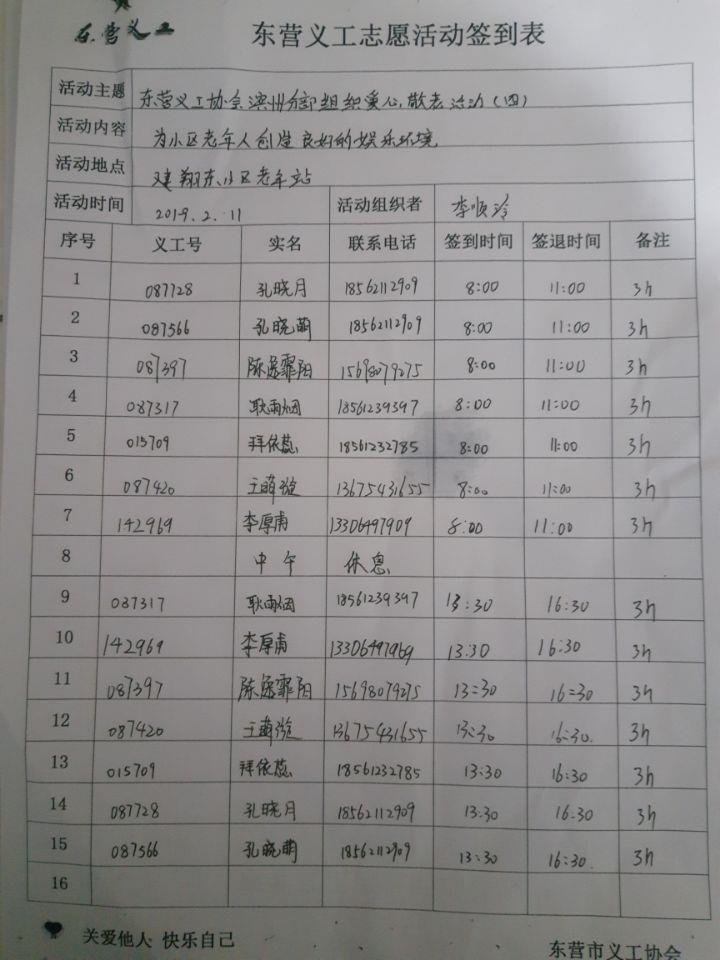 东营义工
东营义工志愿活动签到表
活动主题 东营义工协会滨州分部组织爱心,敬老活动(四)
活动内容 为小区老年人创造良好的娱乐环境
活动地点 建翔东小区老年站
活动时间 2019.2.11 活动组织者 李顺玲
序号 义工号 实名 联系电话 签到时间 签退时间 备注
1 087728 孔晓月 18562112909 8:00 11:00 3h
2 087566 孔晓萌 18562112909 8:00 11:00 3h
3 087397 陈逸霏阳 15698079275 8:00 11:00 3h
4 087317 耿雨烟 18561239397 8:00 11:00 3h
5 015709 拜依蕊 18561232785 8:00 11:00 3h
6 087420 王萌璇 13675431655 8:00 11:00 3h
7 142969 李厚甫 13306497909 8:00 11:00 3h
8 中午 休息
9 087317 耿雨烟 18561239397 13:30 16:30 3h
10 142969 李厚甫 13306497969 13:30 16:30 3h
11 087397 陈逸霏阳 15698079275 13:30 16:30 3h
12 087420 王萌璇 13675431655 13:30 16:30. 3h
13 015709 拜依蕊 18561232785 13:30 16:30 3h
14 087728 孔晓月 18562112909 13:30 16:30 3h
15 087566 孔晓萌 18562112909 13:30 16:30. 3h
16
关爱他人 快乐自己
东营市义工协会